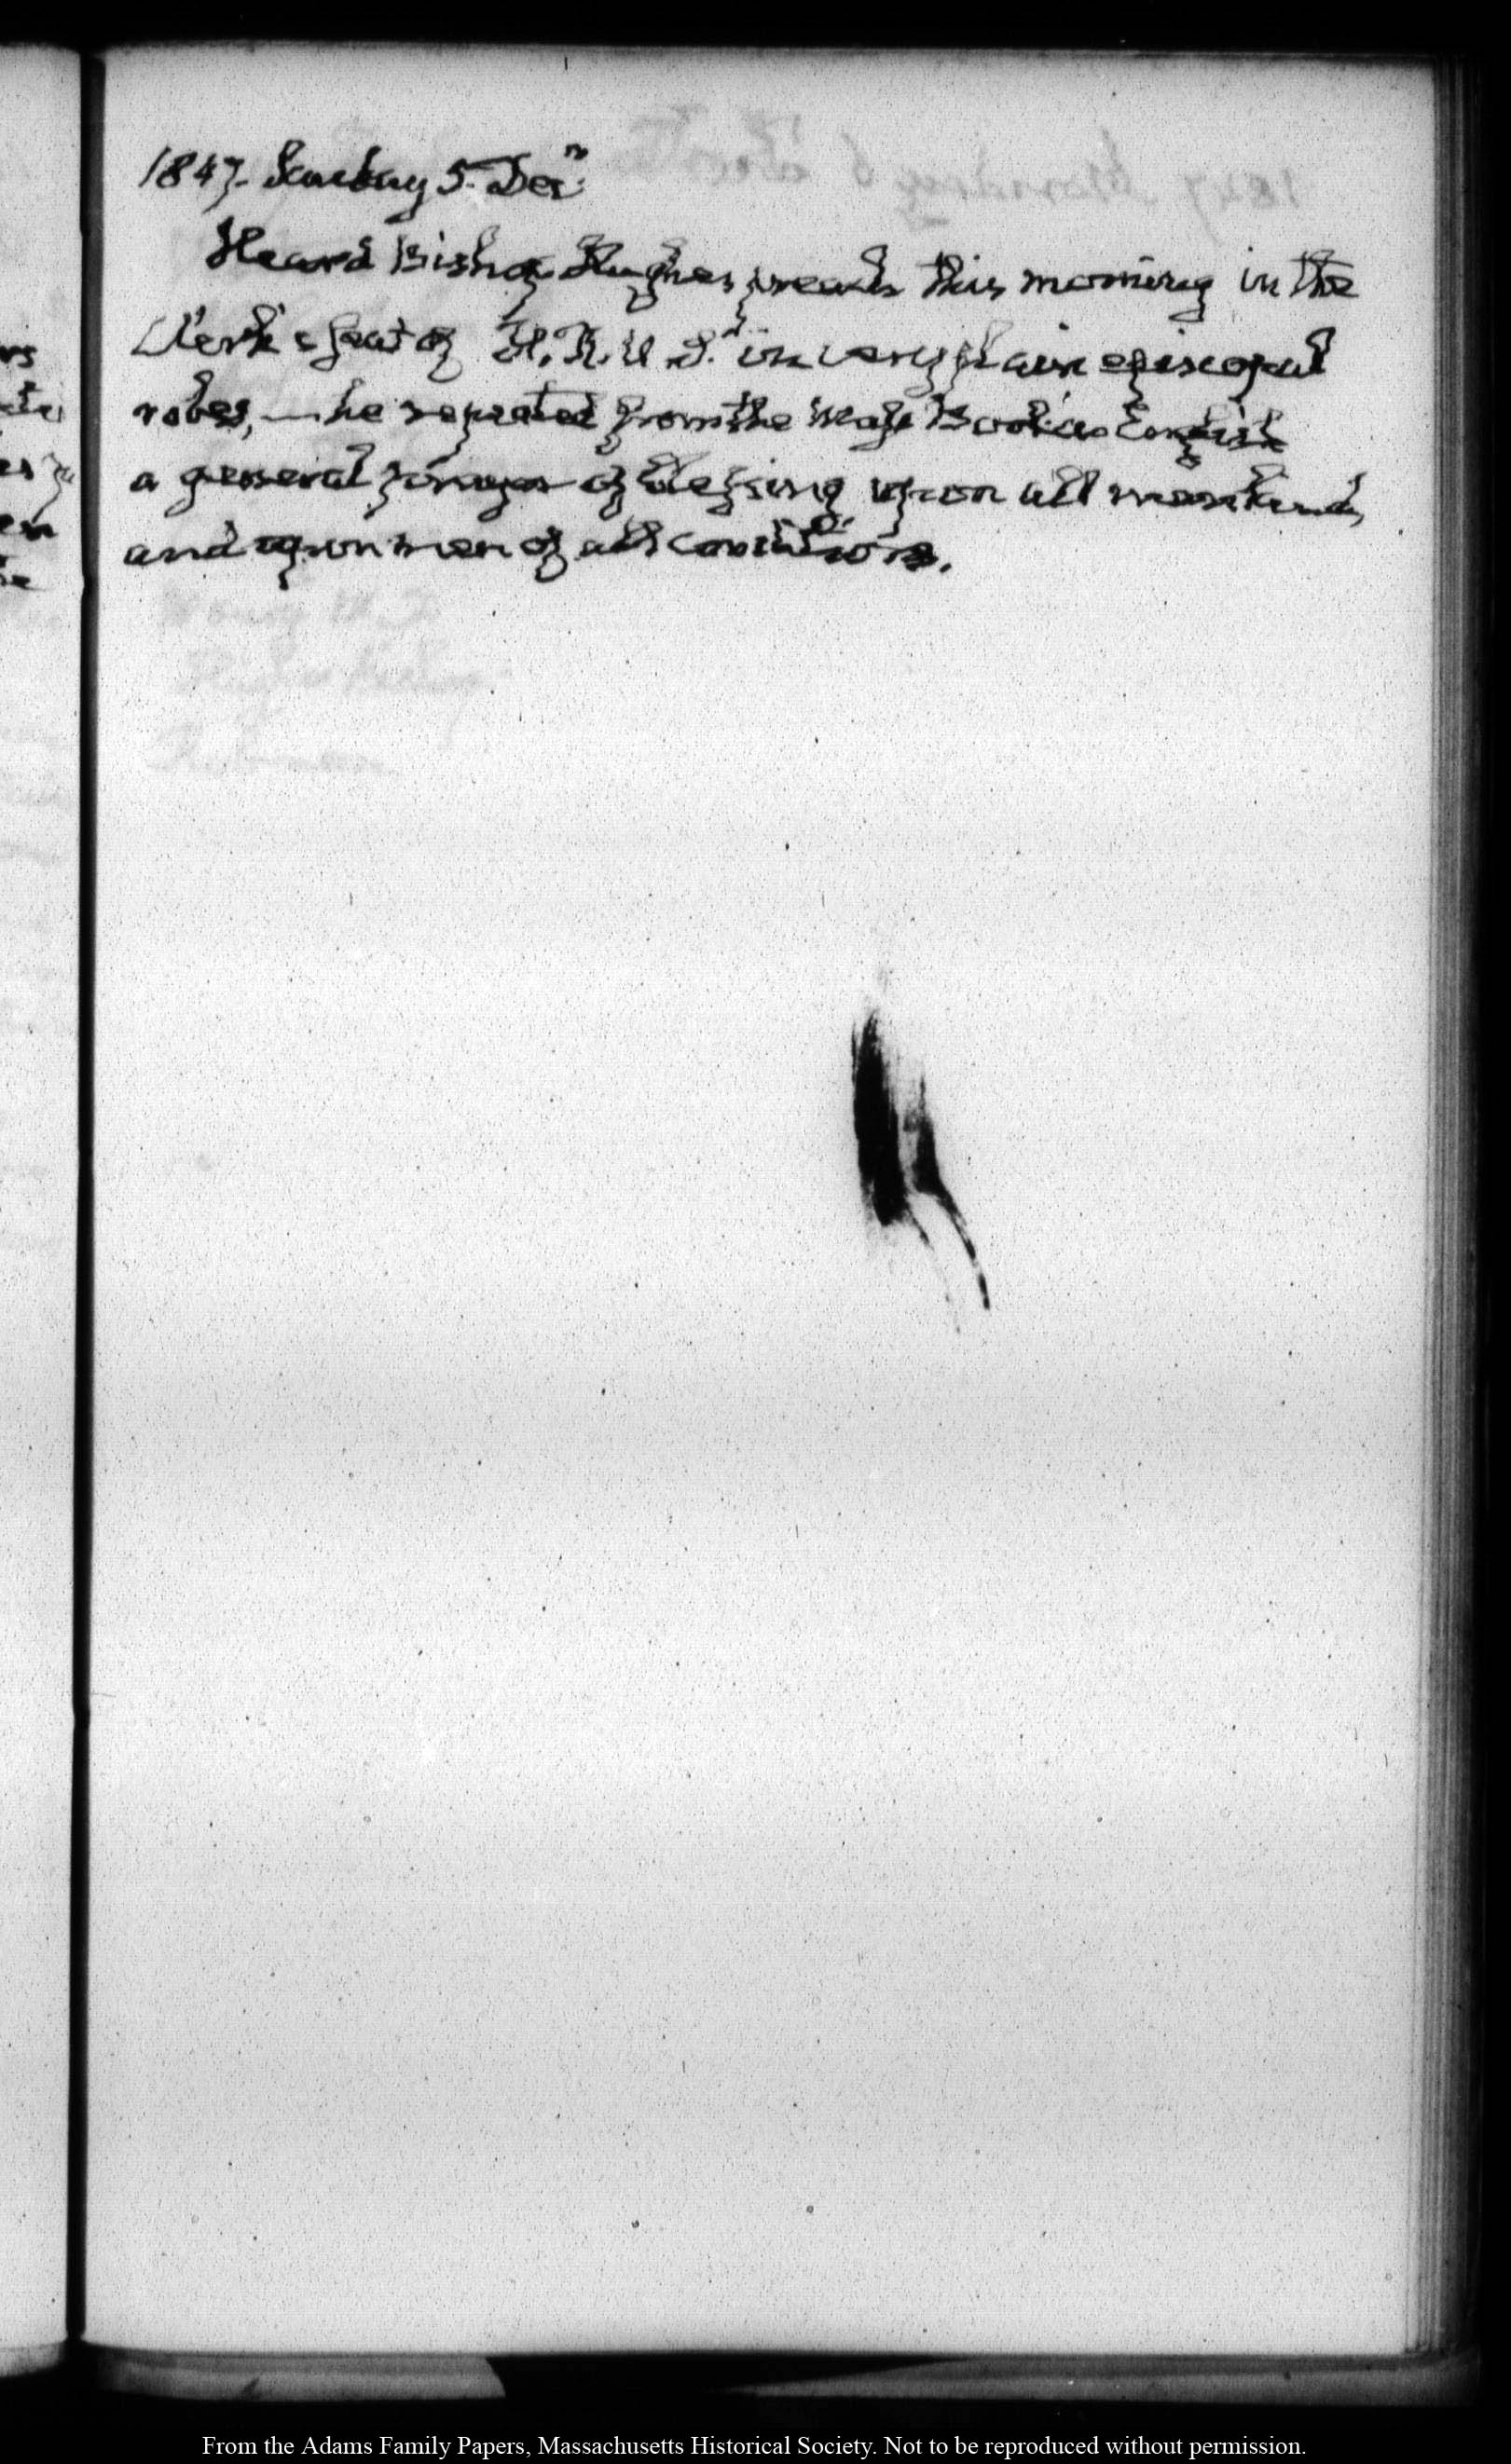 1847. Sunday 5. Decr.
Heard Bishop Hughes preach this morning in the
Clerk's seat of H.R.U.S. in very plain episcopal
robes, — he repeated from the Mass Book in English
a general prayer of blessing upon all mankind,
and upon men of all conditions.
From the Adams Family Papers, Massachusetts Historical Society. Not to be reproduced without permission.